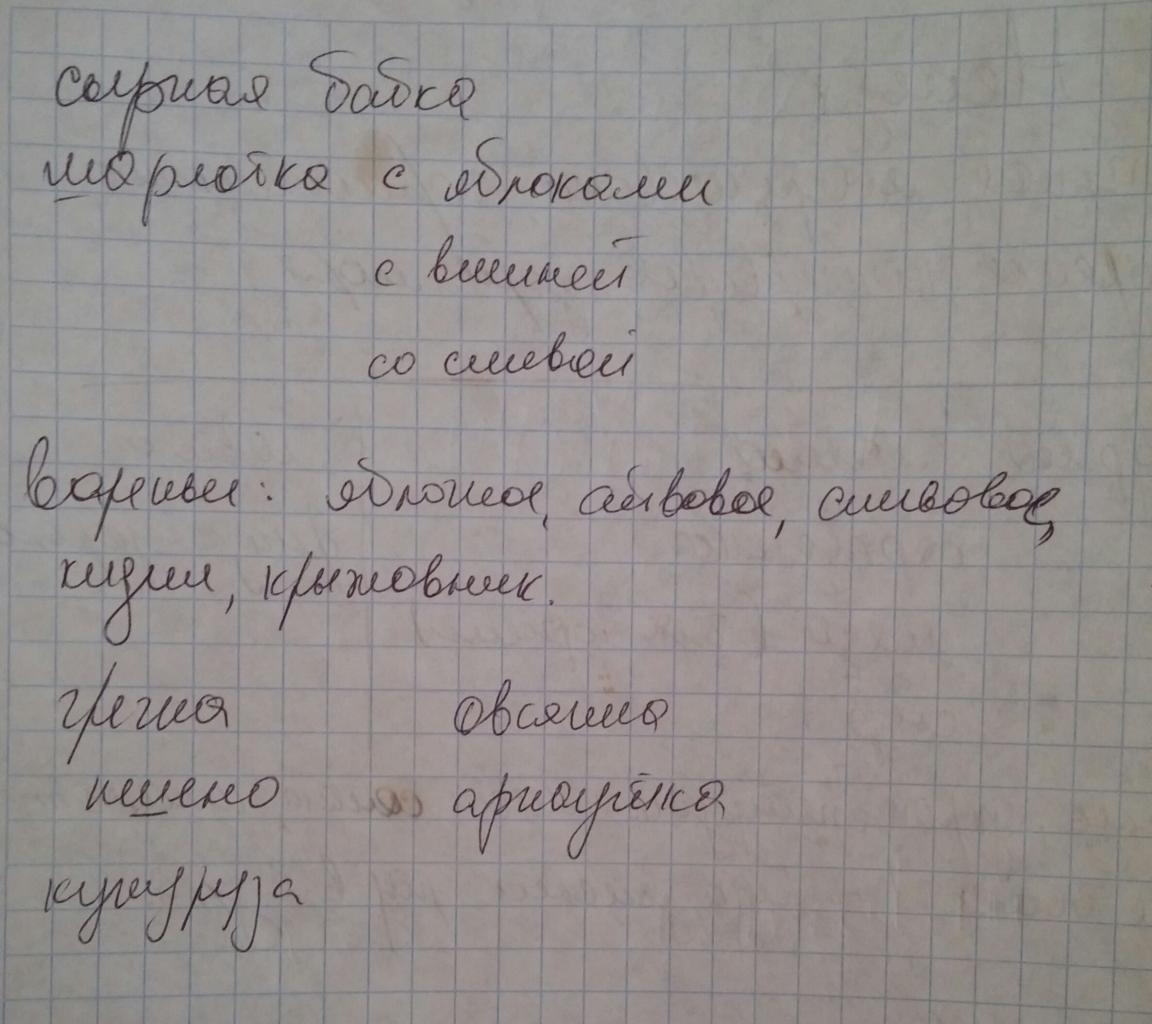 сырная бабка
шарлотка с яблоками
с вишней
со сливой
варенье: яблочное, айвовое, сливовое,
кизил, крыжовник.
гречка овсянка
пшено арнаутка
кукуруза